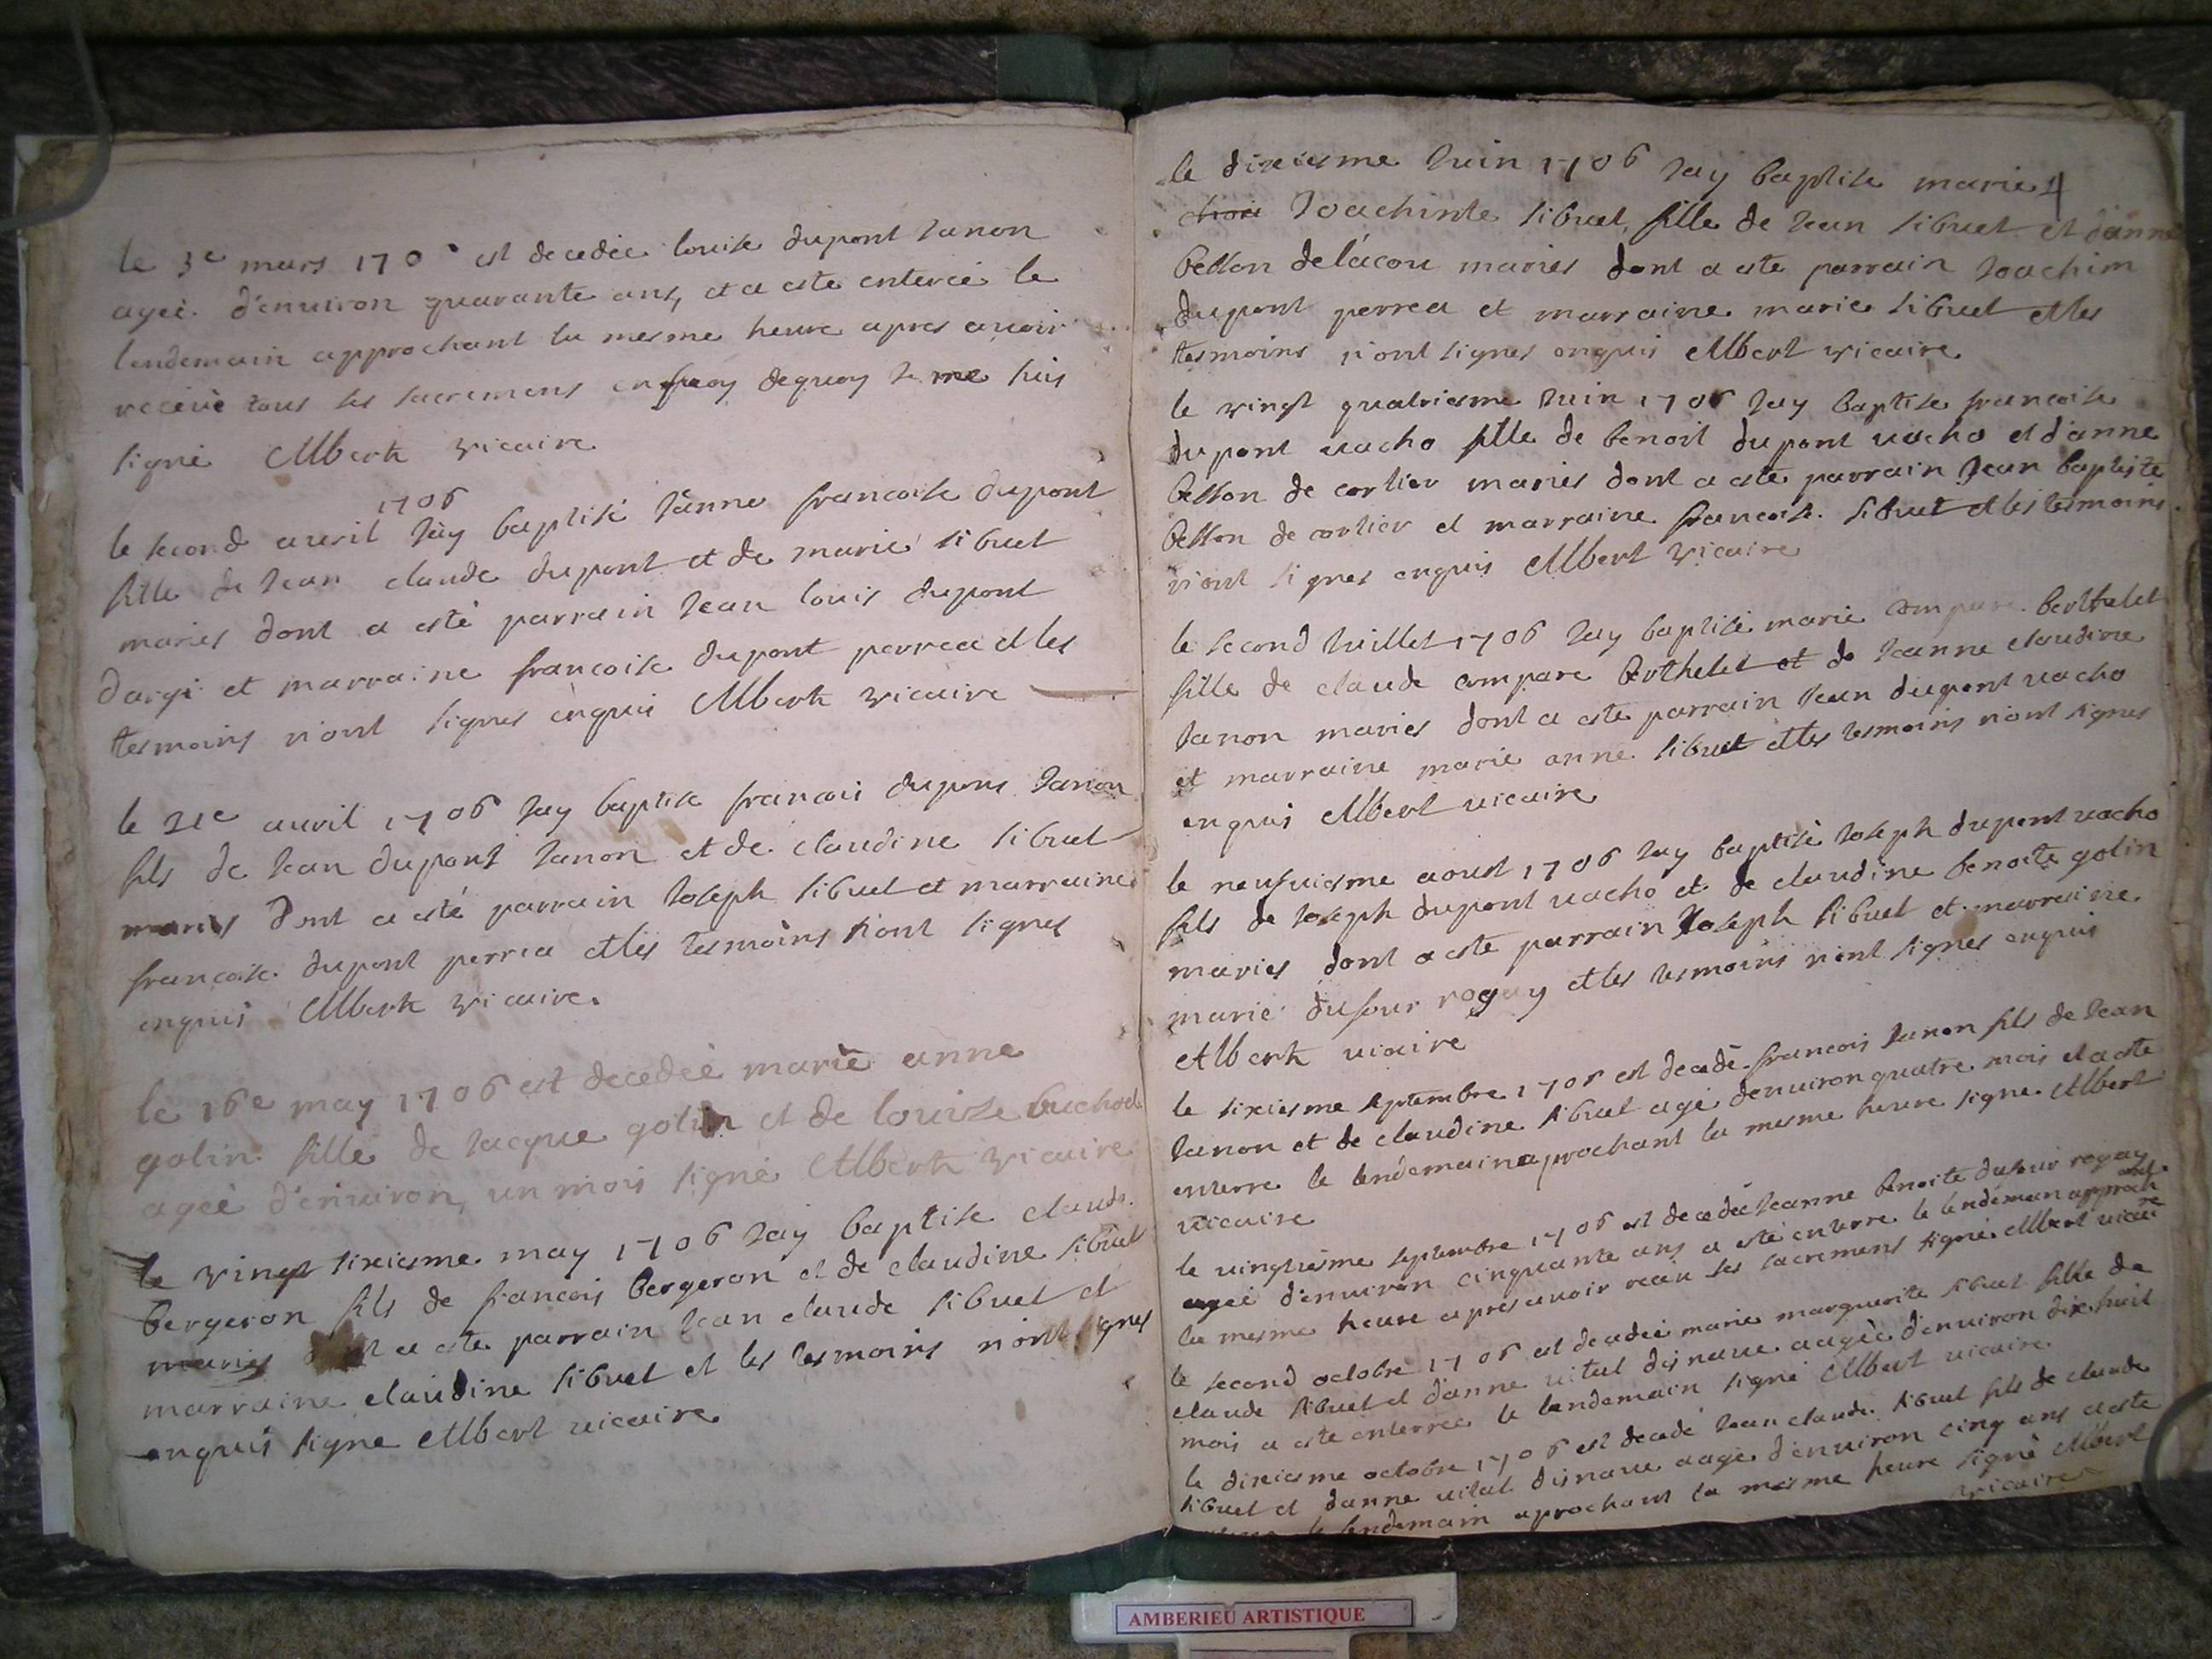 le 3e mars 170 est decedée louise dupont Janon
ageé d'enuiron quarante ans, et a este enterreé le
lendemain approchant la mesme heure apres auoir
receüe tous ses sacremens en foy dequoy Je me suis
signé Albert vicaire
1706
le second auril J'ay baptisé Janne francoise dupont
fille de Jean claude dupont et de marie sibuet
mariés dont a esté parrain Jean louis dupont
et marraine francoise dupont perrea et les
tesmoins n'ont signes enquis Albert vicaire
le 21e auril 1706 Jay baptise francois dupont Janon
fils de Jean dupont Janon et de claudine sibuet
mariés dont a esté parrain Joseph sibuet et marraine
francoise dupont perrea et les tesmoins n'ont signes
enquis Albert vicaire.
le 16e may 1706 est decedeé marie anne
golin fille de Jacque golin et de louise buchod
ageé d'enuiron, un mois signé Albert vicaire
le vingt sixiesme may 1706 Jay baptise claude
bergeron fils de francois bergeron et de claudine sibuet
mariés dont a este parrain Jean claude sibuet et
marraine claudine sibuet et les tesmoins n'ont signes
enquis signe Albert uicaire
le dixiesme Juin 1706 Jay baptise marie 4
Joachinte sibuet, fille de Jean sibuet et d'anne
besson delacou mariés dont a este parrain Joachim
dupont perrea et marraine marie sibuet et les
tesmoins n'ont signes enquis Albert vicaire
le vingt quatriesme Juin 1706 Jay baptise francoise
dupont uacho fille de benoit dupont uacho et d'anne
besson de corlier mariés dont a este parrain Jean baptiste
besson de corlier et marraine francoise sibuet et les tesmoins
n'ont signes enquis Albert vicaire
le second Juillet 1706 Jay baptisé marie compare berthelet
fille de claude compare berthelet et de Jeanne claudine
Janon mariés dont a este parrain Jean dupont uacho
et marraine marie anne sibuet et les tesmoins n'ont signes
enquis Albert uicaire
le neufuiesme aoust 1706 Jay baptisé Joseph dupont uacho
fils de Joseph dupont uacho et de claudine benoite golin
mariés dont a este parrain Joseph sibuet et marraine
marie dufour rogay et les tesmoins n'ont signes enquis
Albert uicaire
le sixiesme septembre 1706 est decedé francois Janon fils de Jean
Janon et de claudine sibuet agé denuiron quatre mois et a este
enterre le lendemain aprochant la mesme heure signe Albert
vicaire
le uingtiesme septembre 1706 est decedeé Jeanne benoite dufour rogay
ageé d'enuiron cinquante ans a esté enterre le lendemain approchant
la mesme heure apres auoir receu ses sacremens signé Albert uicaire
le second octobre 1706 est decedeé marie marguerite sibuet fille de
claude sibuet et d'anne uitat disnaue aagée d'enuiron dix huit
mois a este enterree le lendemain signé Albert uicaire
le dixiesme octobre 1706 est decedé Jean claude sibuet fils de claude
sibuet et danne uitat disnaue aagé d'enuiron cinq ans a este
le lendemain aprochant la mesme heure signé Albert
vicaire
AMBERIEU ARTISTIQUE